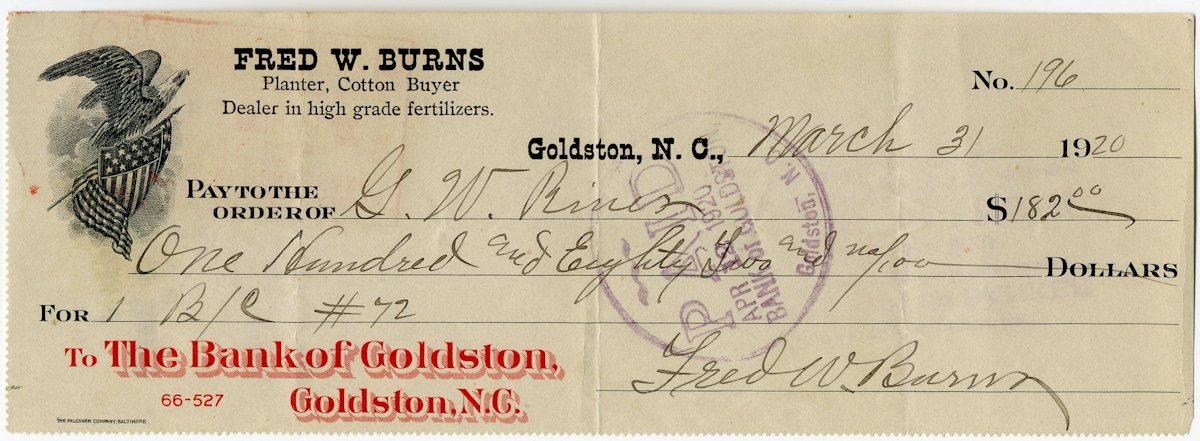 FRED W. BURNS
Planter, Cotton Buyer
Dealer in high grade fertilizers.
No. 196
Goldston, N. C., March 31 1920
PAY TO THE ORDER OF G. W. Rives $182.00
One Hundred and Eighty Two and no/100 DOLLARS
FOR 1 B/C #72
To The Bank of Goldston,
Goldston, N.C.
66-527
Fred W. Burns
THE FALCONER COMPANY, BALTIMORE
PAID
APR 1920
BANK OF GOLDSTON
Goldston, N. C.